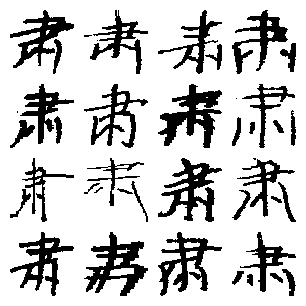 肃肃肃肃
肃肃肃肃
肃肃肃肃
肃肃肃肃